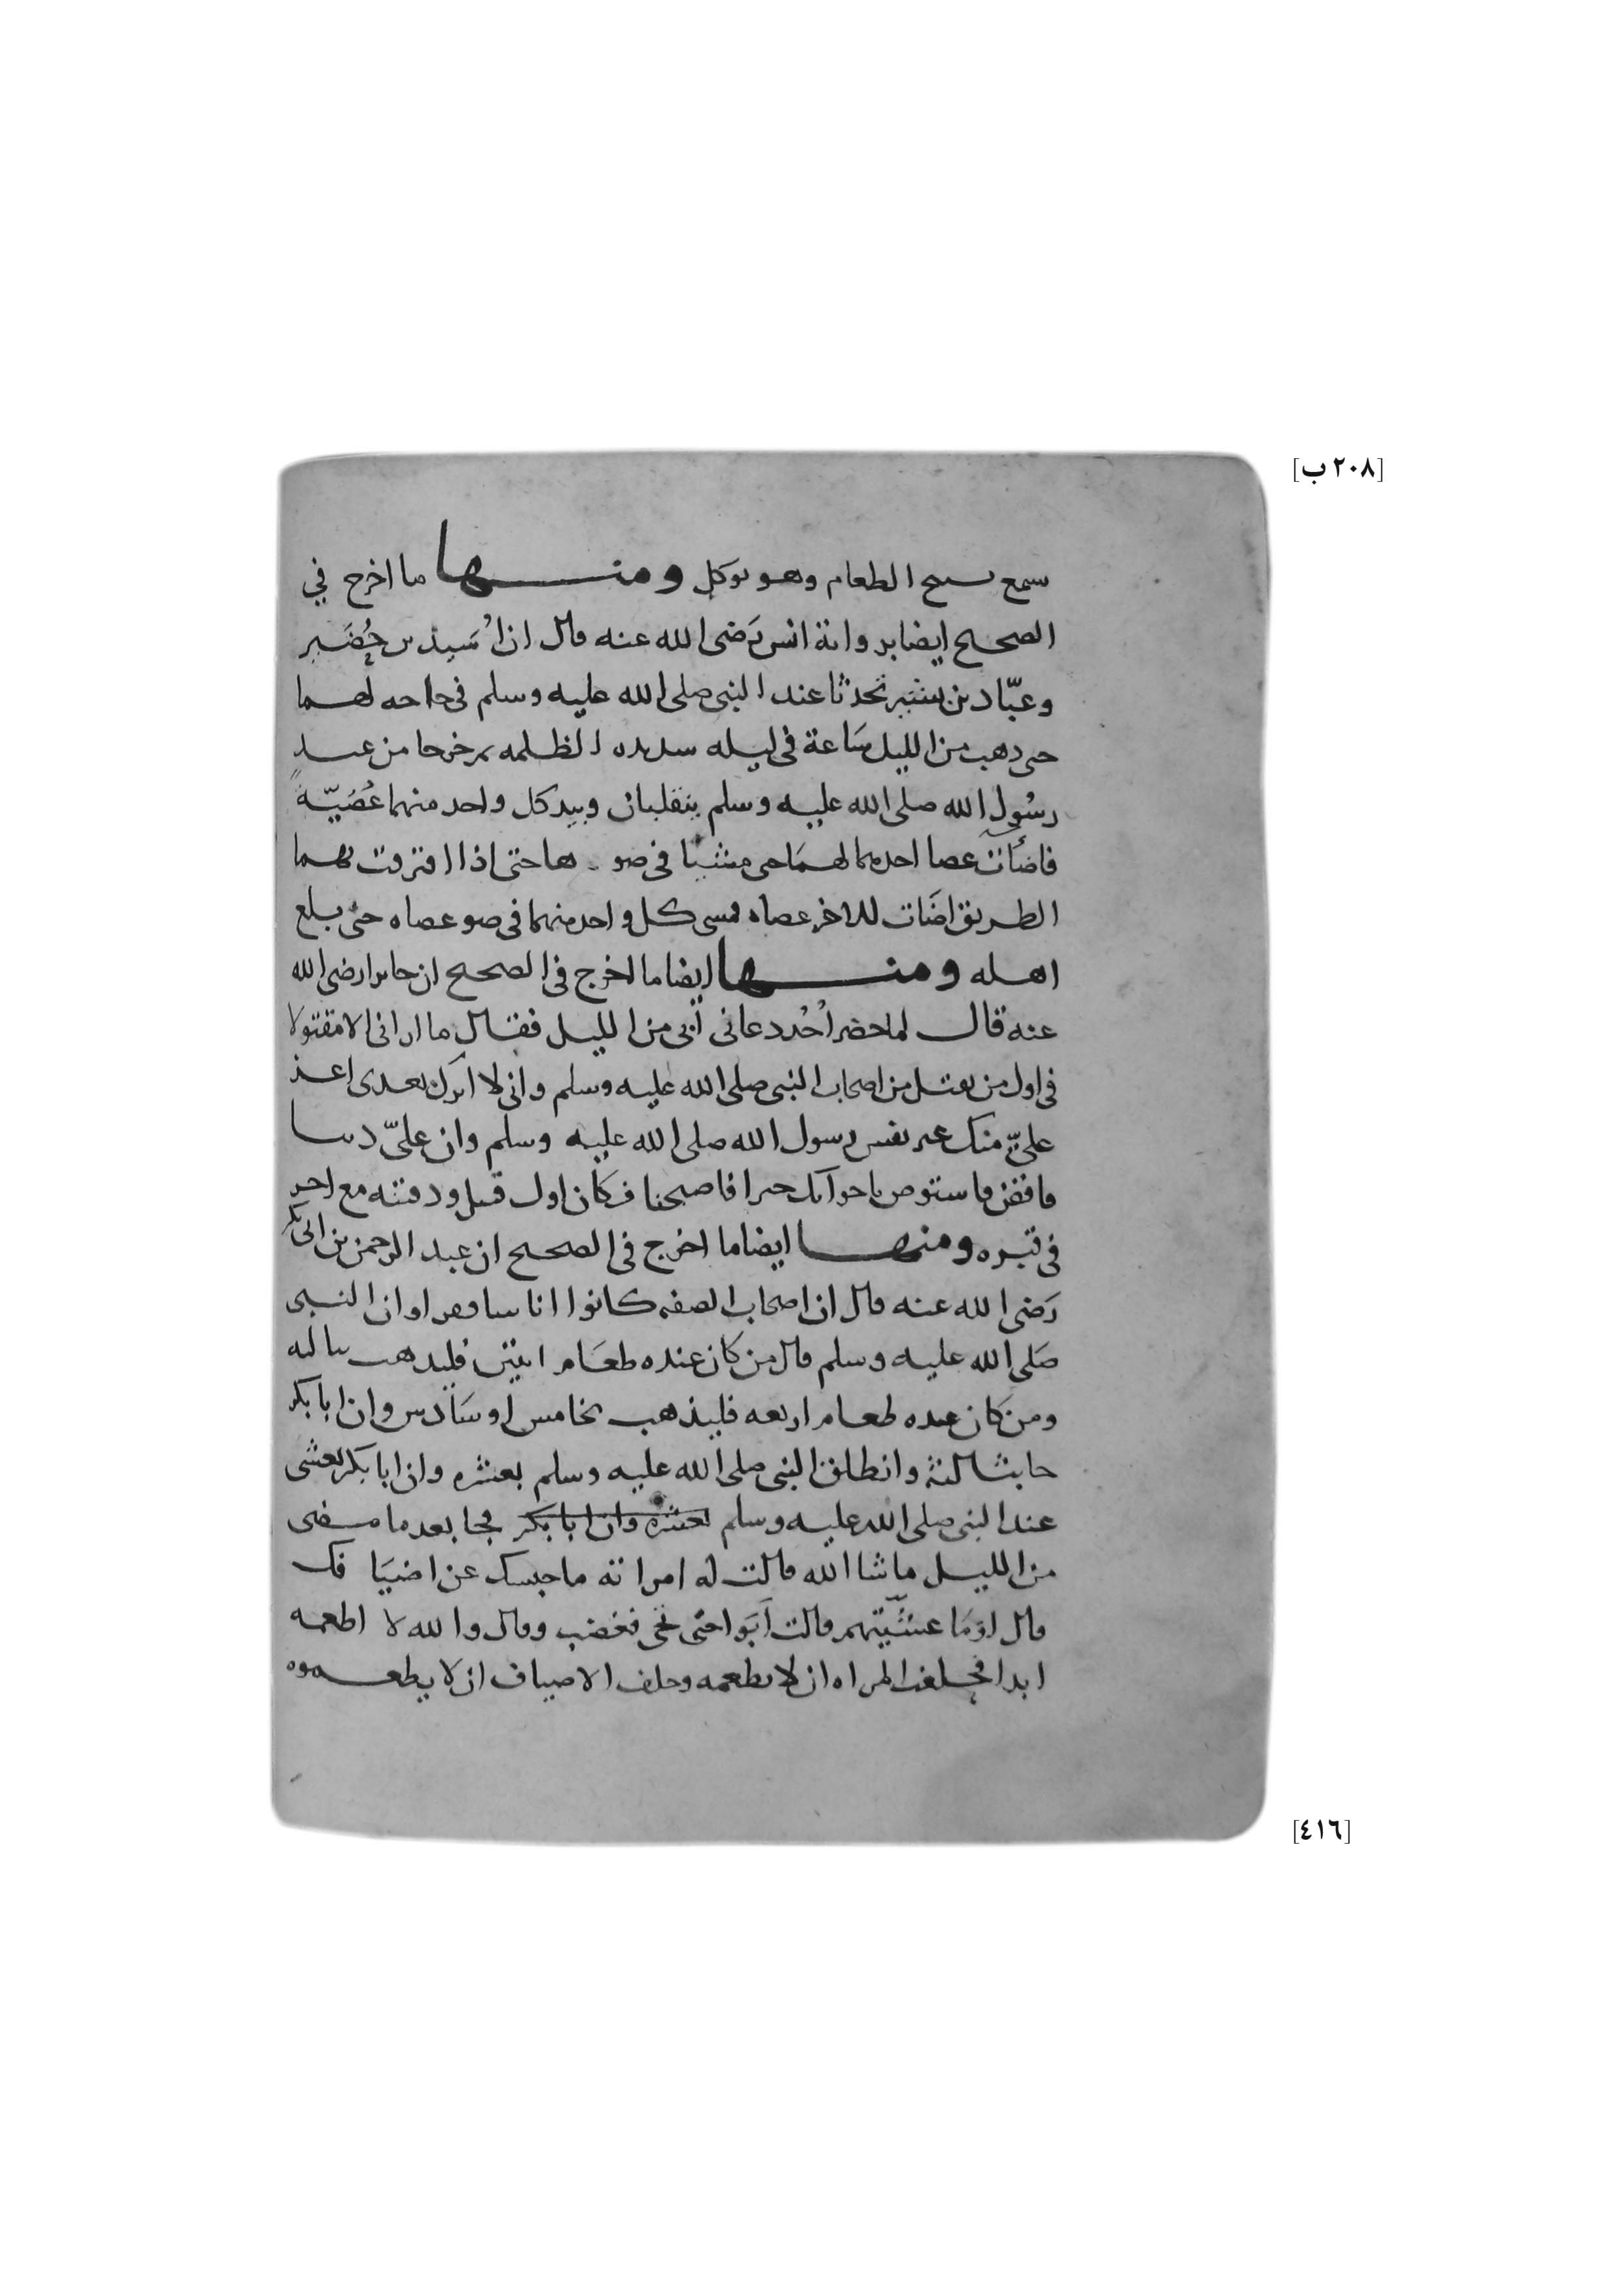 [٢٠٨ ب]
سمع تسبيح الطعام وهو يوكل ومنها ما اخرج في
الصحيح ايضا برواية انس رَضى الله عنه قال ان اُسَيد بن حُضَير
وعبّاد بن بشر تحدثا عند النبى صلى الله عليه وسلم فى حاجه لهما
حتى ذهب من الليل سَاعة فى ليله شديده الظلمه ثم خرجا من عند
رسُول الله صلى الله عليه وسلم ينقلبان وبيد كل واحد منهما عُصَيّةً
فاضأت عصا احدهما لهمَا حتى مشيَا فى ضوءها حتى اذا افترقت بهما
الطريق اضَات للاخر عصاه فمشى كل واحد منهما فى ضو عصاه حتى بلغ
اهله ومنها ايضا ما اخرج فى الصحيح ان جابرا رضى الله
عنه قال لما حضر اُحُد دعانى أبى من الليل فقال ما ارانى الا مقتولا
فى اول من يقتل من اصحاب النبى صلى الله عليه وسلم وانى لا اترك بعدى اعز
علىّ منك غير نفس رسول الله صلى الله عليه وسلم وان علىّ دينا
فاقض واستوص باخواتك خيرا فاصبحنا فكان اول قتيل ودفنته مع اخر
فى قبره ومنها ايضا ما اخرج فى الصحيح ان عبد الرحمن بن ابى بكر
رَضى الله عنه قال ان اصحاب الصفه كانوا اناسا فقرا وان النبى
صَلى الله عليه وسلم قال من كان عنده طعَام اثنين فليذهب بثالثه
ومن كان عنده طعام اربعه فليذهب بخامس او سَادس وان ابا بكر
جا بثالثة وانطلق النبى صلى الله عليه وسلم بعشره وان ابا بكر تعشى
عند النبى صلى الله عليه وسلم بعشره وان ابا بكر فجا بعد ما مضى
من الليل ما شا الله قالت له امراته ما حبسك عن اضيَافك
قال اوَمَا عشّيتهم قالت أبَوا حتى تجى فغضب وقال والله لا اطعمه
ابدا فحلفت المراه ان لا تطعمه وحلف الاضياف ان لا يطعموه
[٤١٦]